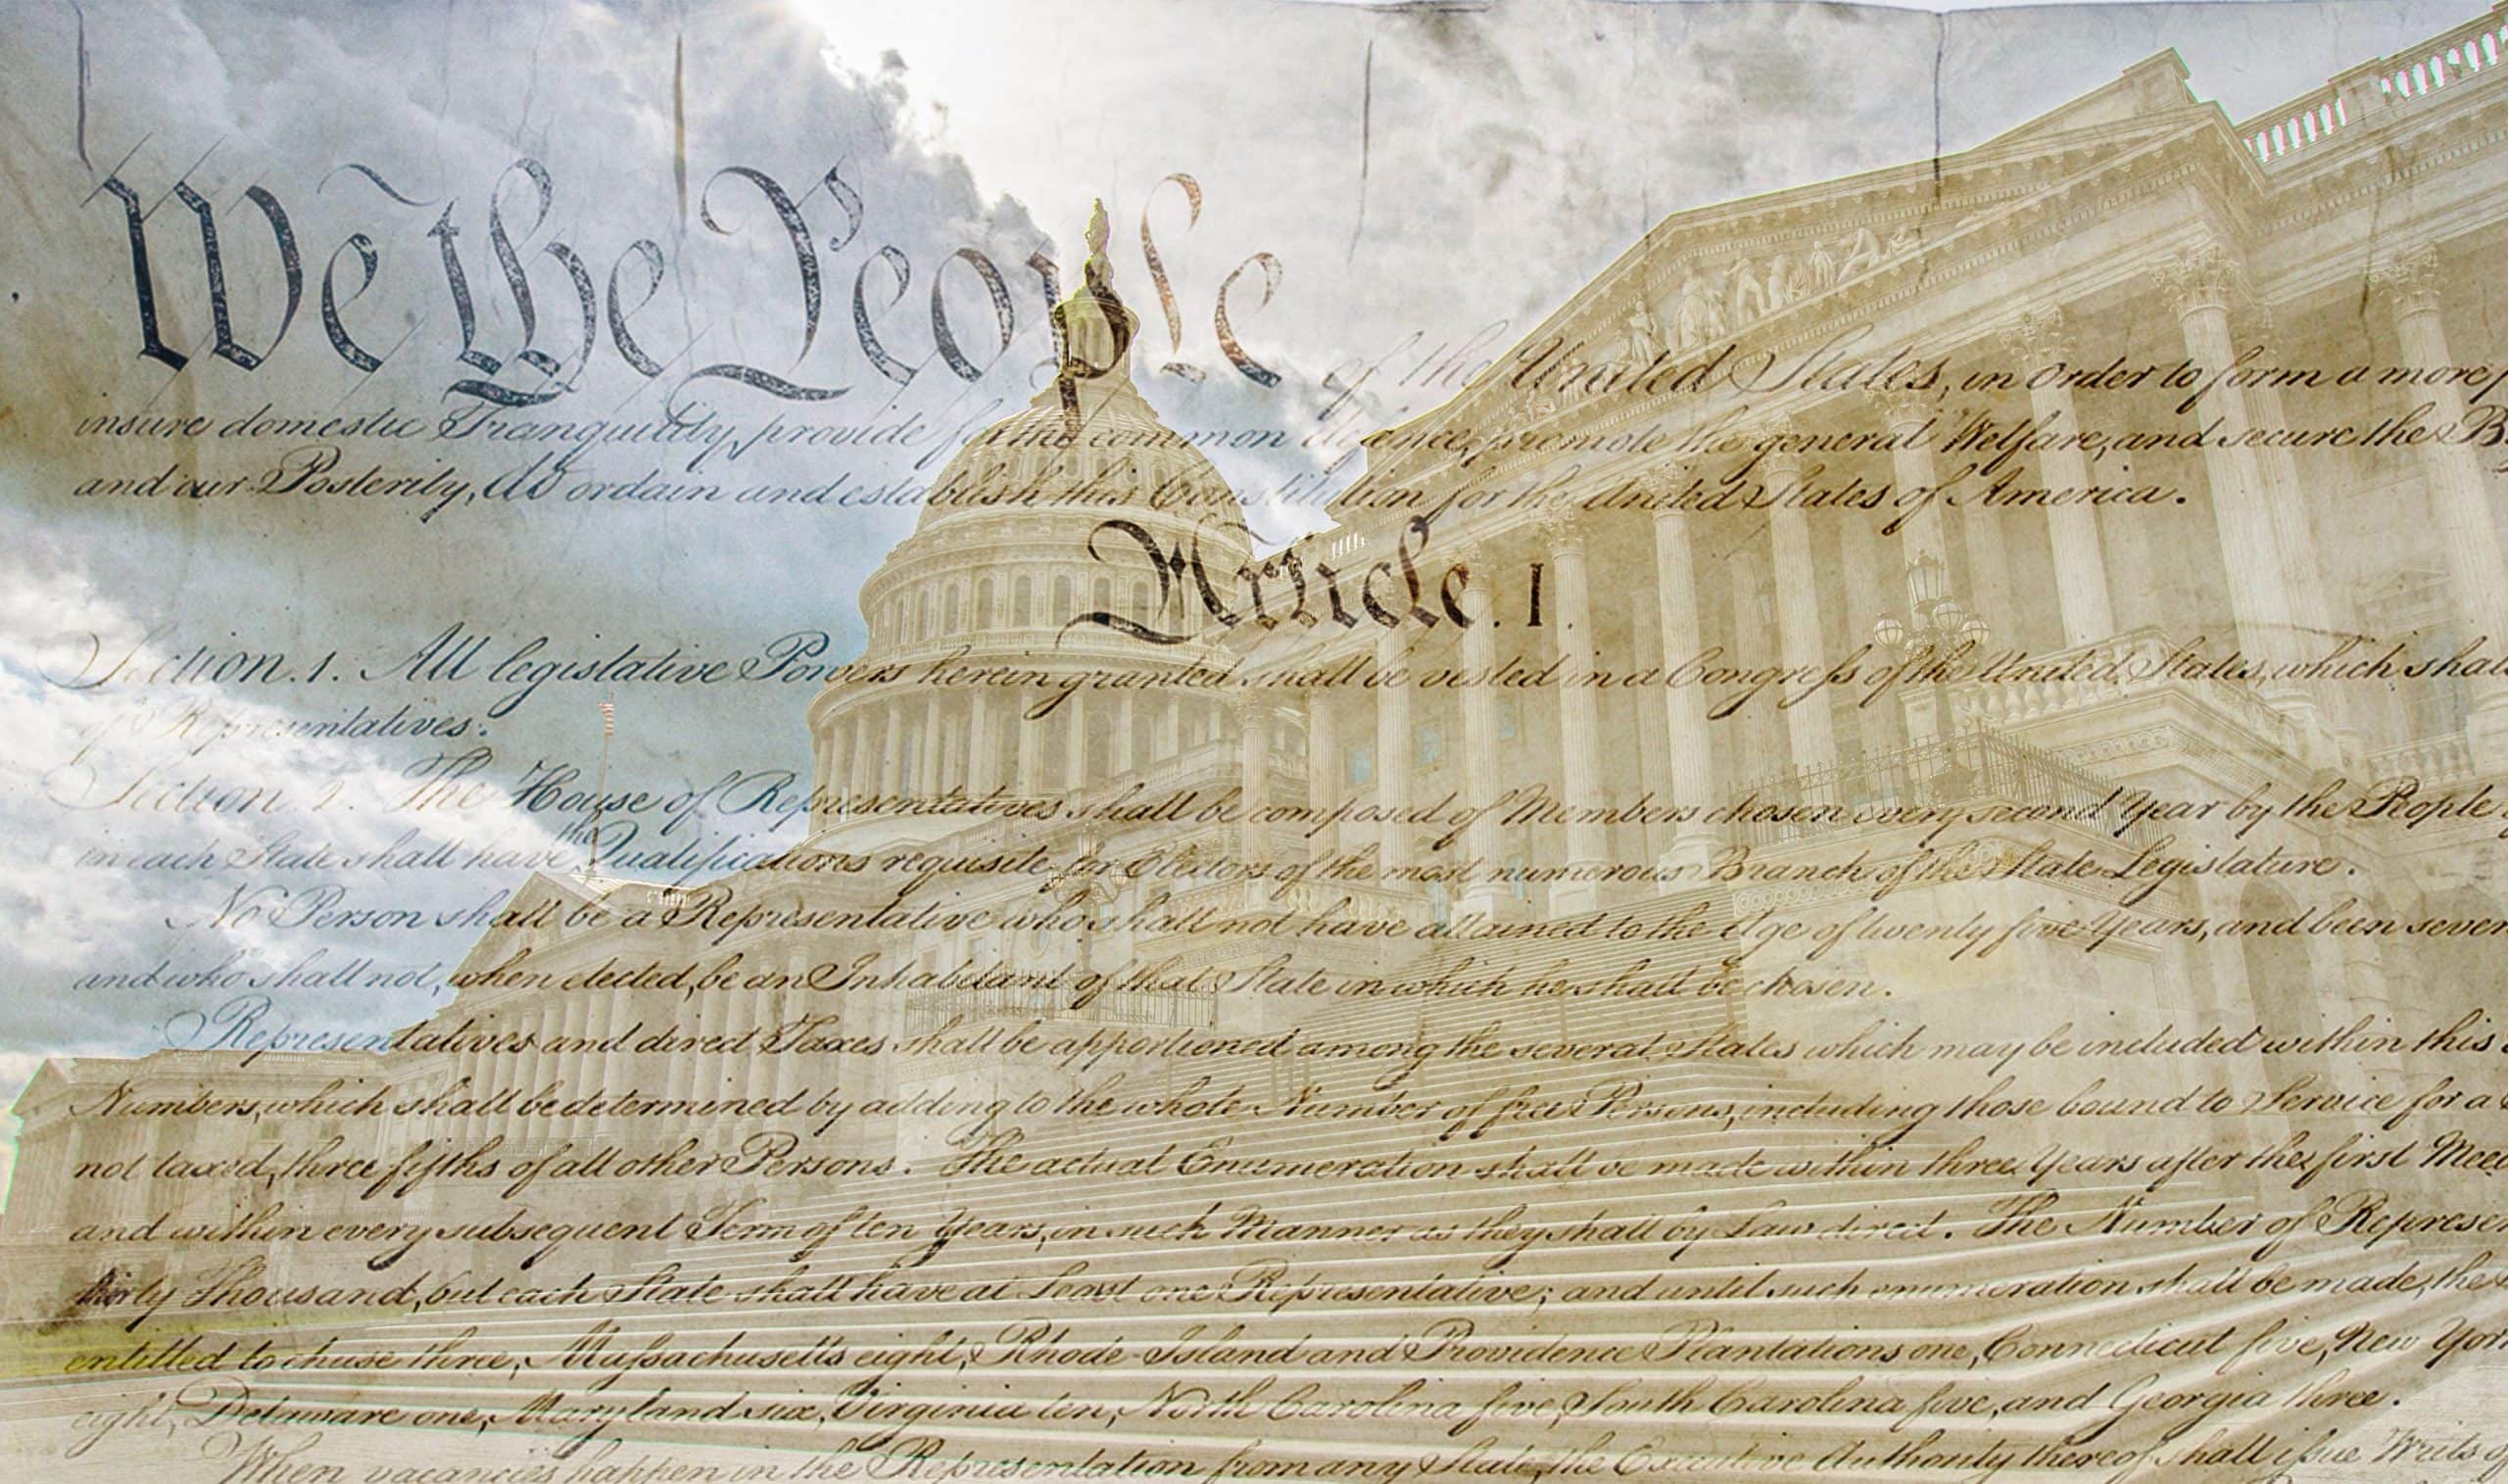 We the People of the United States, in Order to form a more
insure domestic Tranquility, provide for the common defence, promote the general Welfare, and secure the B
and our Posterity, do ordain and establish this Constitution for the United States of America.
Article. I.
Section. 1. All legislative Powers herein granted shall be vested in a Congress of the United States, which shall
of Representatives.
Section. 2. The House of Representatives shall be composed of Members chosen every second Year by the People
in each State shall have the Qualifications requisite for Electors of the most numerous Branch of the State Legislature.
No Person shall be a Representative who shall not have attained to the Age of twenty five Years, and been seven
and who shall not, when elected, be an Inhabitant of that State in which he shall be chosen.
Representatives and direct Taxes shall be apportioned among the several States which may be included within this
Numbers, which shall be determined by adding to the whole Number of free Persons, including those bound to Service for a
not taxed, three fifths of all other Persons. The actual Enumeration shall be made within three Years after the first Mee
and within every subsequent Term of ten Years, in such Manner as they shall by Law direct. The Number of Represen
thirty Thousand, but each State shall have at Least one Representative; and until such enumeration shall be made, the
entitled to chuse three, Massachusetts eight, Rhode-Island and Providence Plantations one, Connecticut five, New York
eight, Delaware one, Maryland six, Virginia ten, North Carolina five, South Carolina five, and Georgia three.
When vacancies happen in the Representation from any State, the Executive Authority thereof shall issue Writs of